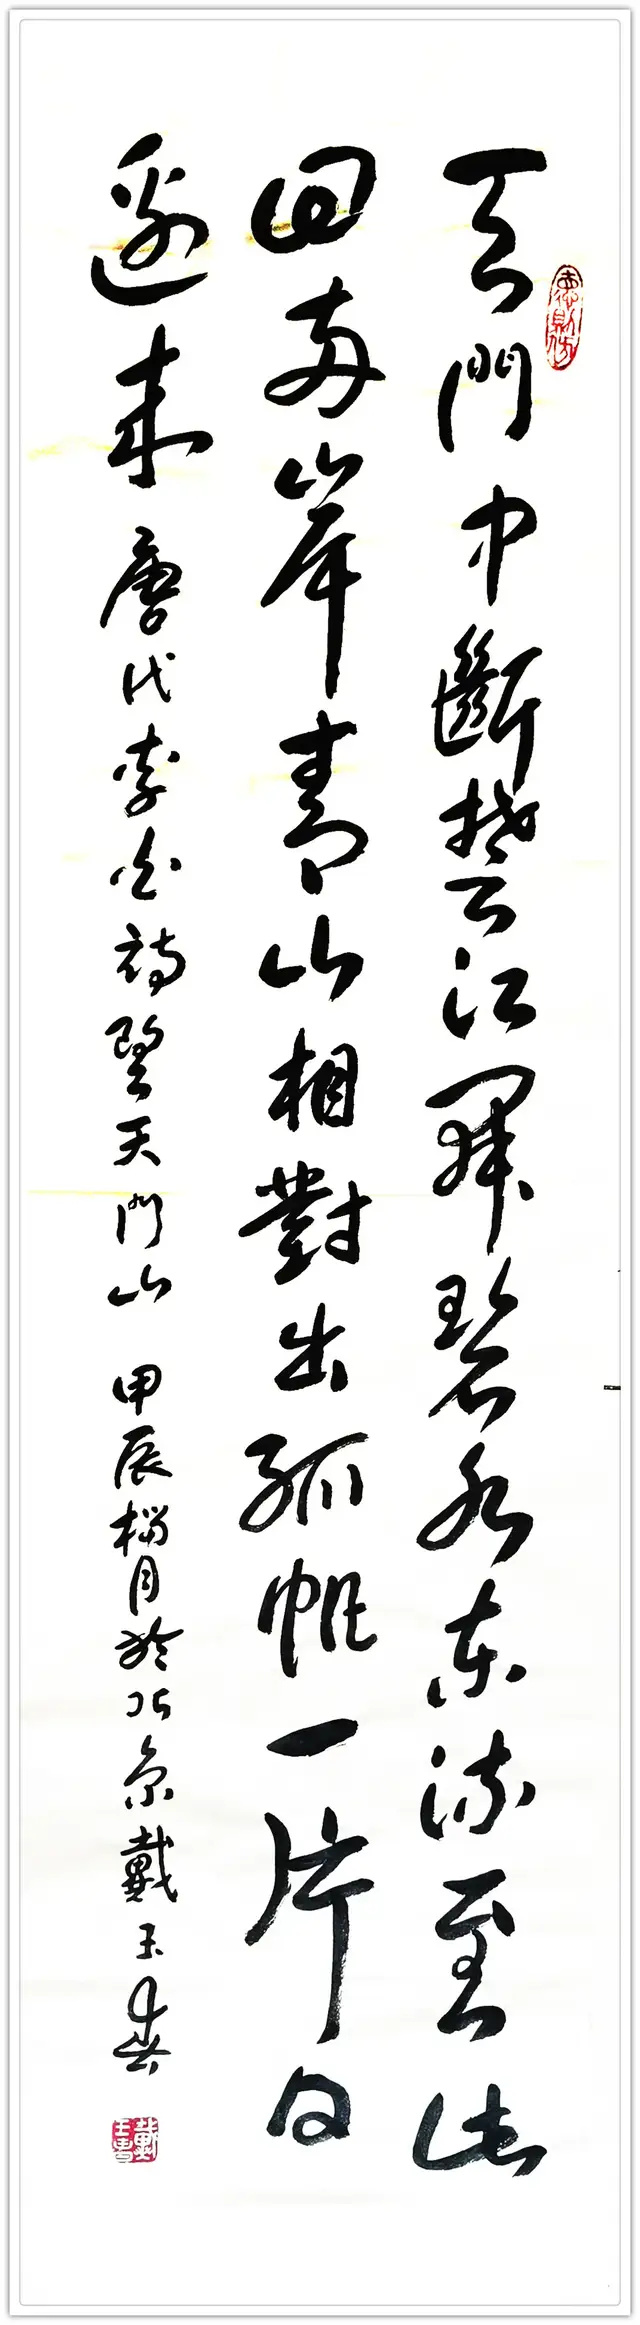 天門中斷楚江開碧水東流至此
回兩岸青山相對出孤帆一片日
邊來 唐代李白詩望天門山 甲辰榴月於北京戴玉春